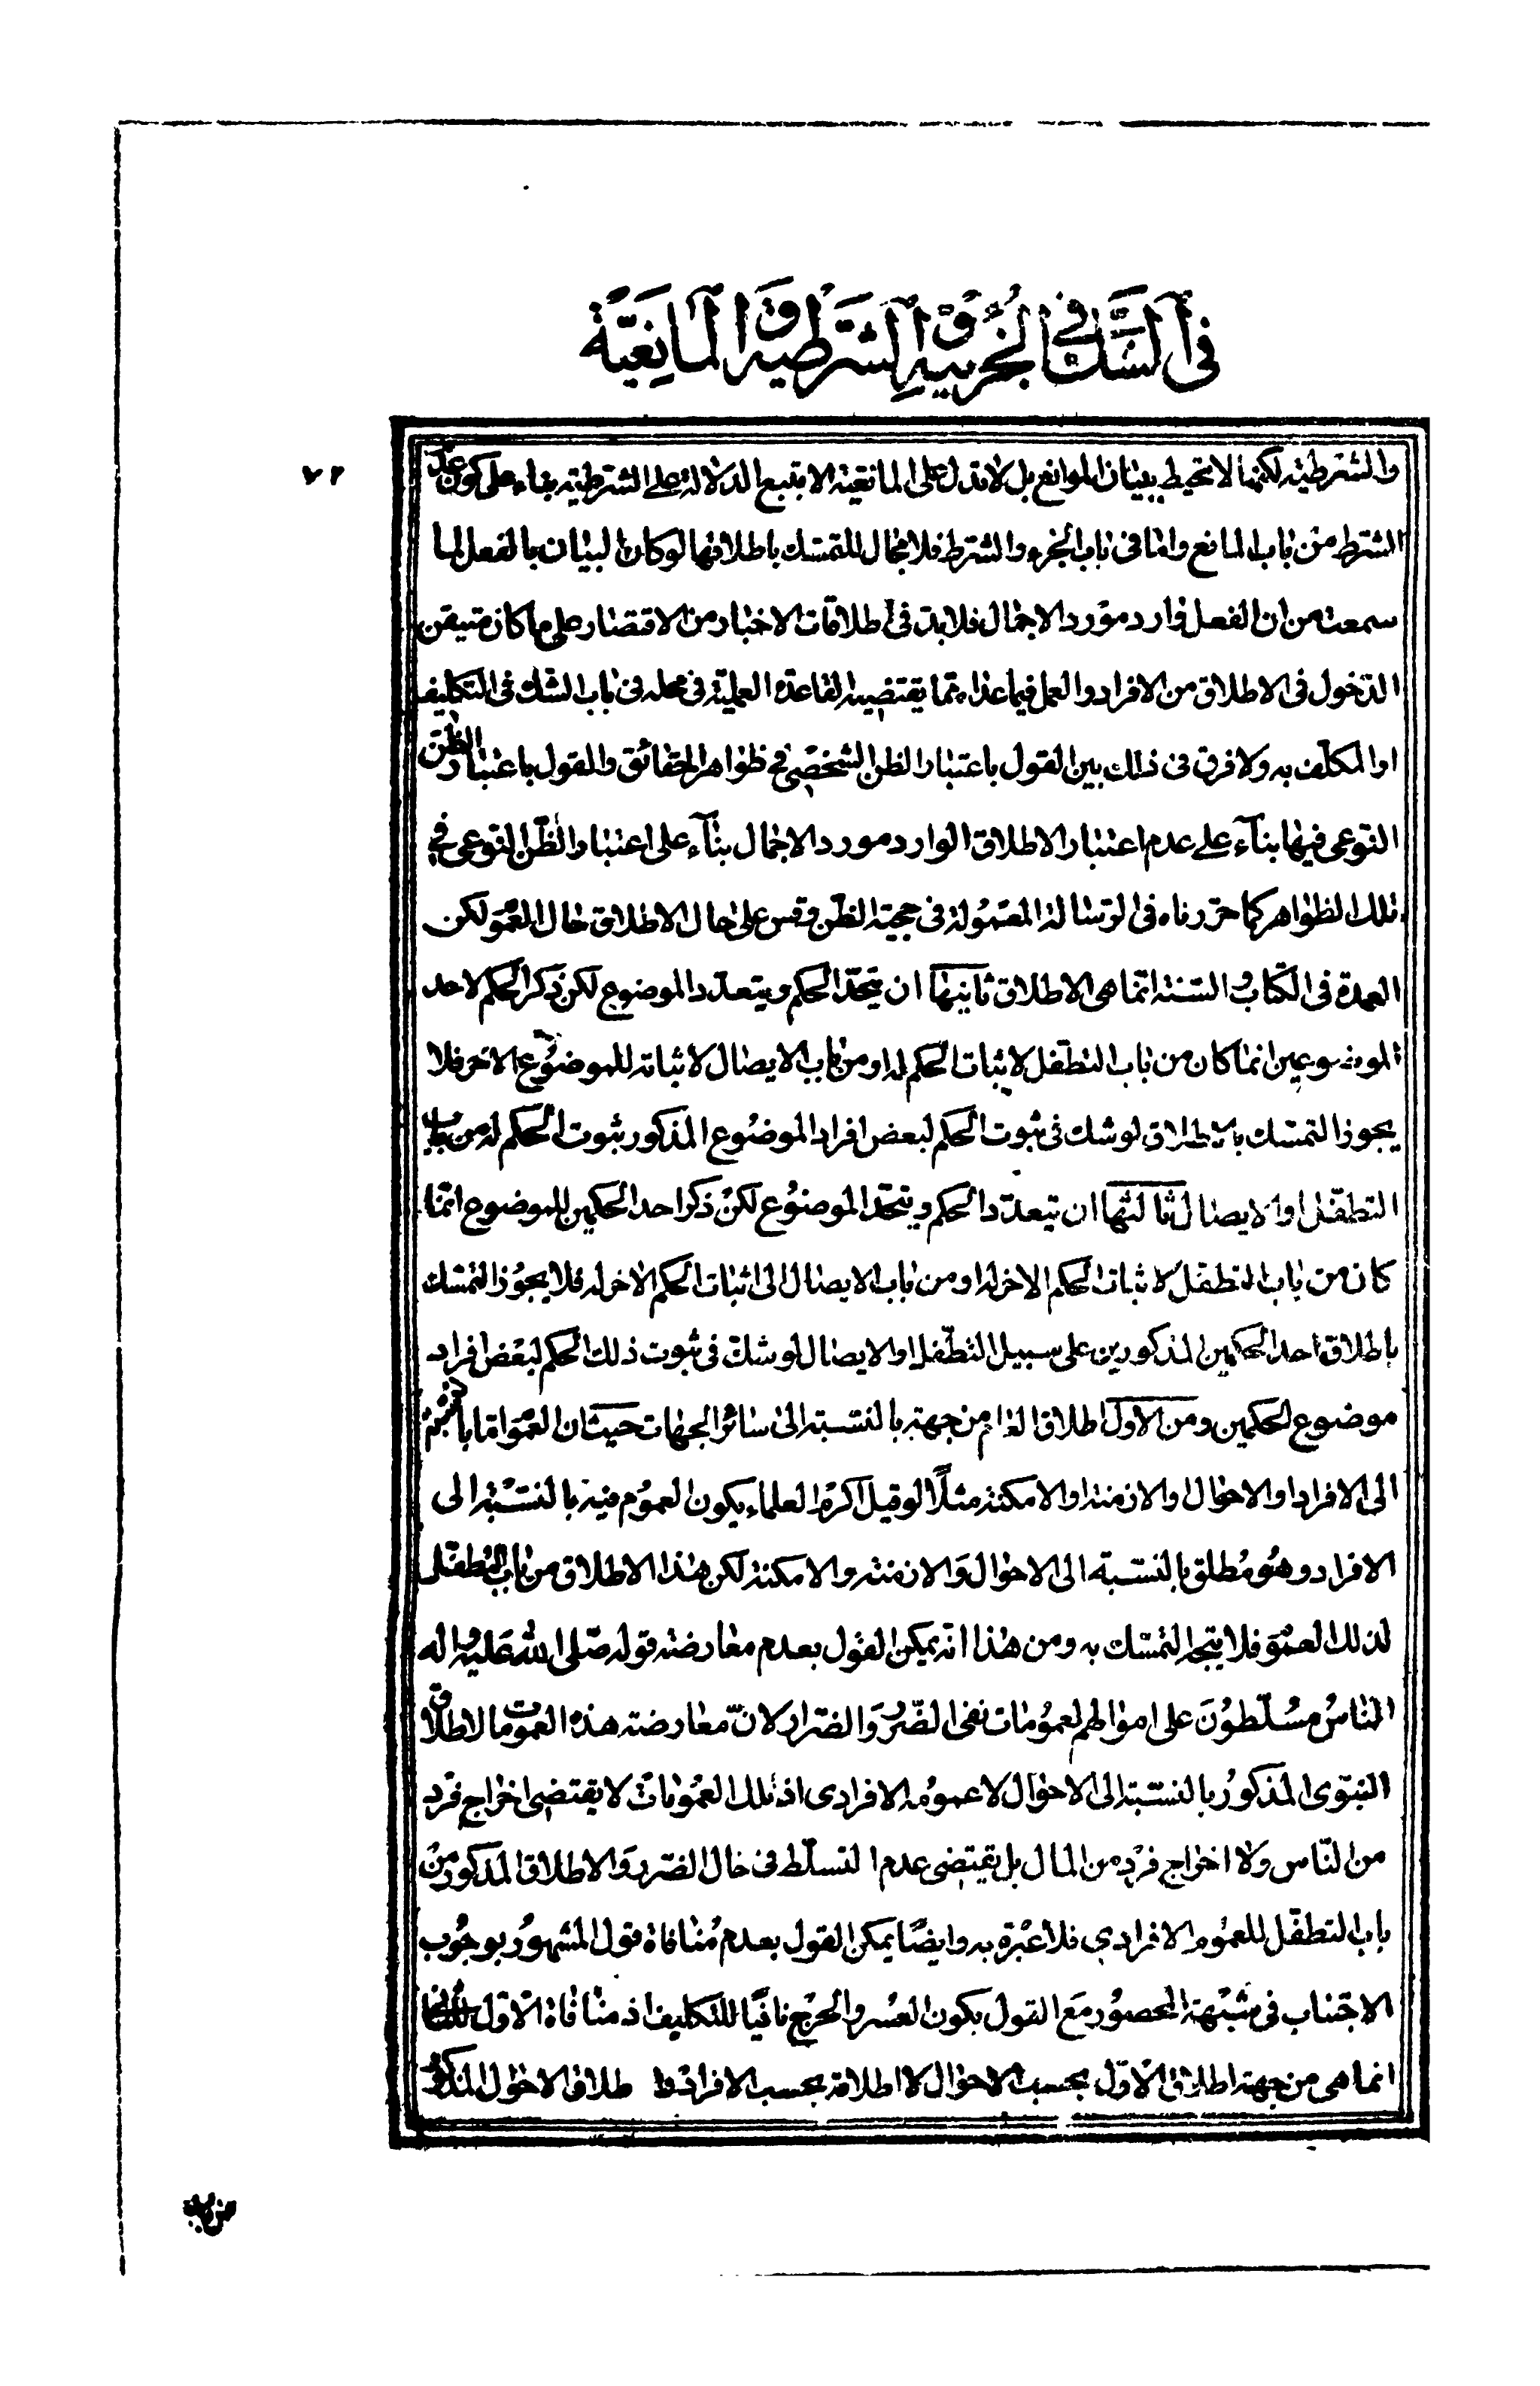 في الشك في الجزئية و الشرطية و المانعية
٧٢
والشرطية لكنها لا تحيط ببيان الموانع بل لا تدل على المانعية الا بتبع الدلالة على الشرطية بناء على كون عدم
الشرط من باب المانع واما فى باب الجزء والشرط فلا مجال للتمسك باطلاقها لو كان البيان بالفعل لما
سمعت من ان الفعل وارد مورد الاجمال فلا بد فى اطلاقات الاخبار من الاقتصار على ما كان متيقن
الدخول فى الاطلاق من الافراد والعمل فيما عداه بما يقتضيه القاعدة العملية فى محله فى باب الشك فى التكليف
او المكلف به ولا فرق فى ذلك بين القول باعتبار الظن الشخصى فى ظواهر الحقائق والقول باعتبار الظن
النوعى فيها بناء على عدم اعتبار الاطلاق الوارد مورد الاجمال بناء على اعتبار الظن النوعى فى
تلك الظواهر كما حررناه فى الرسالة المعمولة فى حجية الظن وقس على حال الاطلاق حال العموم لكن
العمدة فى الكتاب والسنة انما هى الاطلاق ثانيها ان يتحد الحكم ويتعدد الموضوع لكن ذكر الحكم لاحد
الموضوعين انما كان من باب التطفل لاثبات الحكم له او من باب الايصال لاثباته للموضوع الاخر فلا
يجوز التمسك بالاطلاق لو شك فى ثبوت الحكم لبعض افراد الموضوع المذكور ثبوت الحكم له من باب
التطفل او الايصال ثالثها ان يتعدد الحكم ويتحد الموضوع لكن ذكر احد الحكمين للموضوع انما
كان من باب التطفل لاثبات الحكم الاخر له او من باب الايصال الى اثبات الحكم الاخر له فلا يجوز التمسك
باطلاق احد الحكمين المذكورين على سبيل التطفل او الايصال لو شك فى ثبوت ذلك الحكم لبعض افراد
موضوع الحكمين ومن الاول اطلاق العام من جهة بالنسبة الى سائر الجهات حيث ان العموم اما بالنسبة
الى الافراد او الاحوال او الازمنة او الامكنة مثلا لو قيل اكرم العلماء يكون العموم فيه بالنسبة الى
الافراد وهو مطلق بالنسبة الى الاحوال والازمنة والامكنة لكن هذا الاطلاق من باب التطفل
لذلك العموم فلا يتجه التمسك به ومن هذا انه يمكن القول بعدم معارضة قوله صلى الله عليه واله
الناس مسلطون على اموالهم لعمومات نفى الضرر والضرار لان معارضة هذه العمومات مالاطلاق
النبوى المذكور بالنسبة الى الاحوال لا عمومه الافرادى اذ تلك العمومات لا يقتضى اخراج فرد
من الناس ولا اخراج فرد من المال بل يقتضى عدم التسلط فى حال الضرر والاطلاق المذكور من
باب التطفل للعموم الافرادى فلا عبرة به وايضا يمكن القول بعدم منافاة قول المشهور بوجوب
الاجتناب فى شبهة المحصور مع القول بكون العسر والحرج نافيا للتكليف اذ منافاة الاول للثانى
انما هى من جهة اطلاق الاول بحسب الاحوال لا اطلاقه بحسب الافراد و اطلاق الاحوال المذكور